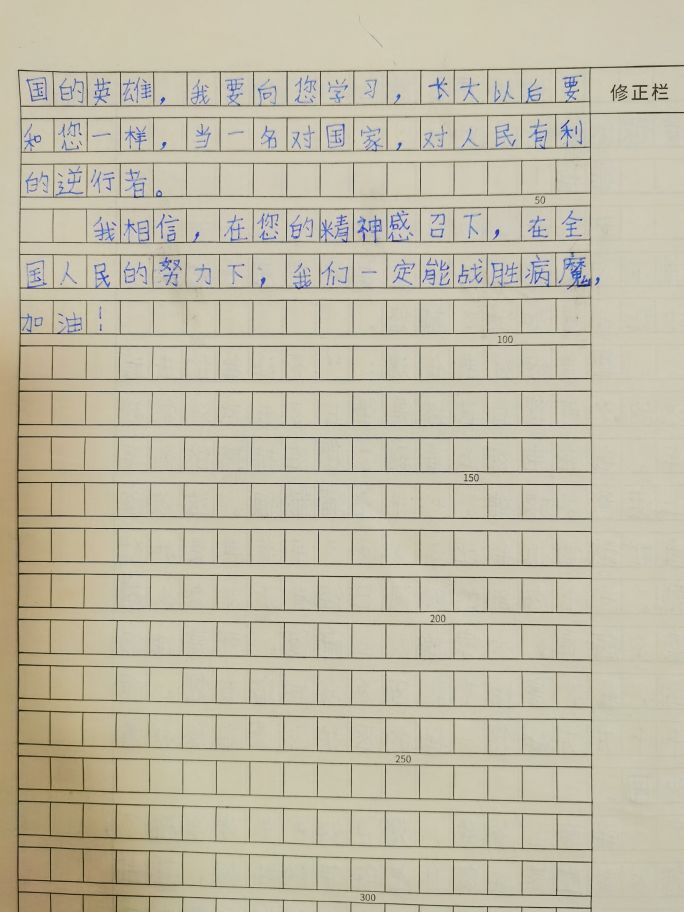 国的英雄，我要向您学习，长大以后要
修正栏
和您一样，当一名对国家，对人民有利
的逆行者。
50
我相信，在您的精神感召下，在全
国人民的努力下，我们一定能战胜病魔，
加油！
100
150
200
250
300